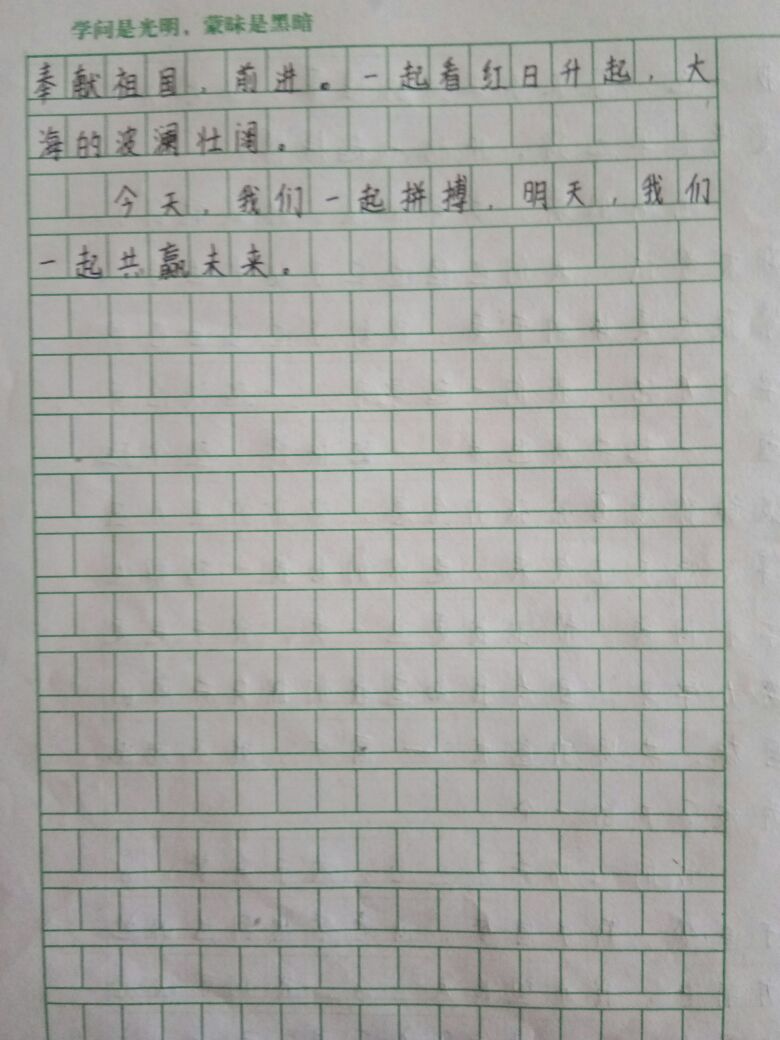 学问是光明，蒙昧是黑暗
奉献祖国，前进。一起看红日升起，大
海的波澜壮阔。
今天，我们一起拼搏，明天，我们
一起共赢未来。